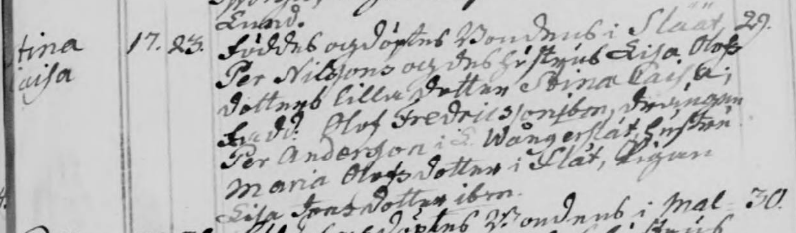 Lund.
Stina 17. 23. Föddes och döptes Bondens i Slät 29.
Caisa Per Nilssons och des hustrus Lisa Olofs
dotters lilla dotter Stina Caisa;
fadd: Olof Fredricsson ibm, drängen
Per Anderson i L. Wångerslät, hustru
Maria Olofsdotter i Slät, Pigan
Lisa Jonsdotter ibm.
döptes Bondens i Mal- 30.